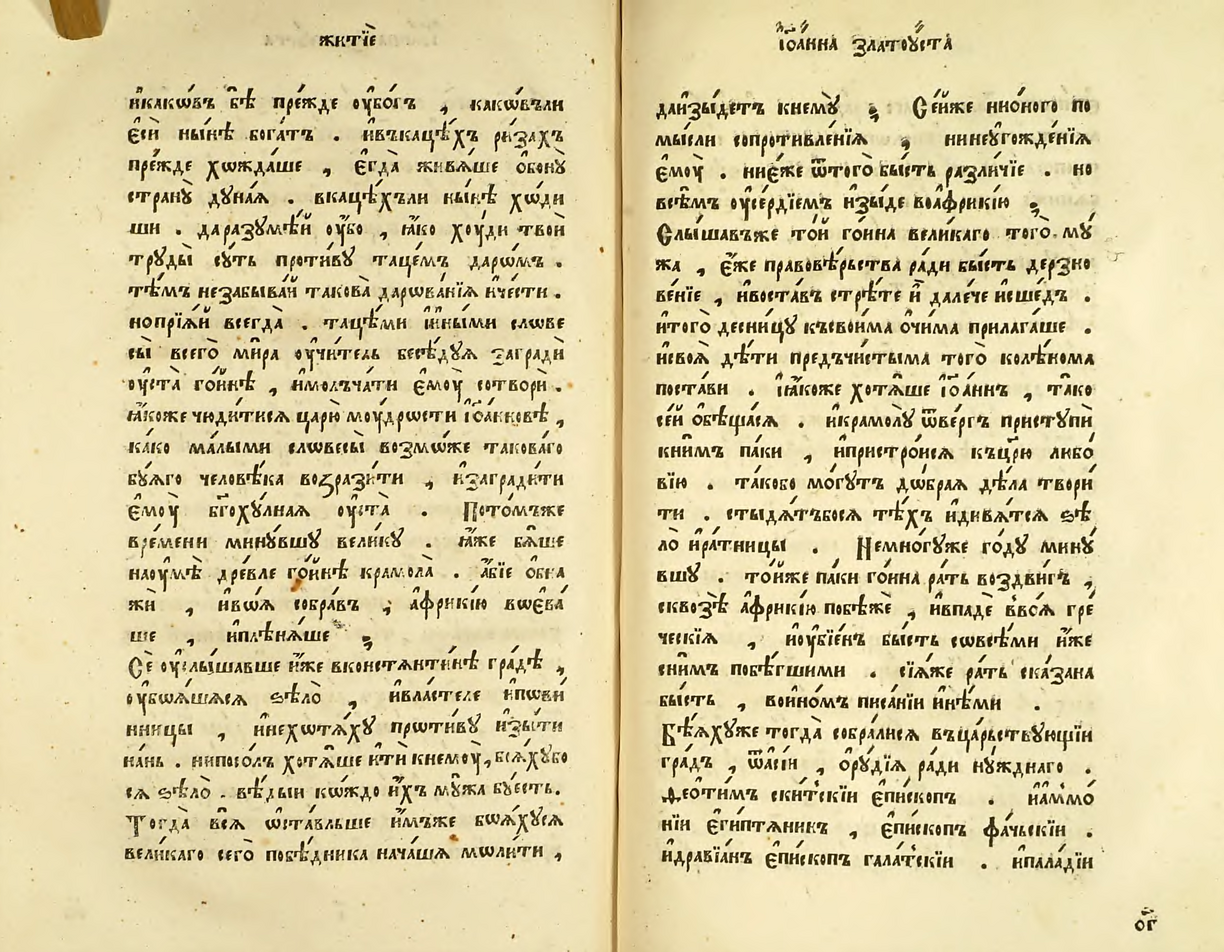 житїѐ
и҆какѡ́въ бѣ̀ пре́жде ᲂу҆бо́гъ , какѡ́въли
є҆сѝ ны́нѣ бога́тъ . и҆въкацѣ́хъ ри́захъ
пре́жде хѡжда́ше , є҆гда̀ живѧ́ше ѻ҆бонꙋ̀
странꙋ̀ дꙋ́наѧ . вкацѣ́хъли ны́нѣ хѡ́ди
ши . да разꙋмѣ́й ᲂу҆́бо , ꙗ҆́ко хоу́ди твоѝ
трꙋды̀ сꙋ́ть проти́вꙋ таце́мъ даро́мъ .
тѣ́мъ незабыва́й такова̀ дарѡва́нїѧ и҆че́сти .
но прїѧ́й всегда̀ . таце́ми и҆и҆ны́ми слѡве
сы̀ всего̀ ми́ра ᲂу҆чи́тель бесѣ́дꙋѧ загради̂
ᲂу҆ста̀ го́йнѣ , и҆молъча́ти є҆моу̀ сотворѝ .
ꙗ҆́коже чюди́тисѧ царю̀ моу́дрости і҆ѻа́нновѣ ,
ка́ко ма́лыми слѡвесы̀ возмо́же такова́го
бꙋ́ѧго человѣ́ка воꙁрази́ти , и҆загради́ти
є҆моу̀ бг҃охꙋ́лнаѧ ᲂу҆ста̀ . Пото́мъже
вре́мени минꙋ́вшꙋ вели́кꙋ . ꙗ҆́же бѧ́ше
наᲂу҆мѣ̀ дре́вле го́йнѣ крамола̀ . а҆́бїе ѻ҆бна
жѝ , и҆во́ѧ собра́въ , а҆фрикі́ю вѡева́
ше , и҆плѣнѧ́ше
Се̂ ᲂу҆слы́шавше и҆́же вконстѧнти́нѣ гра́дѣ ,
ᲂу҆боѧ́шасѧ ѕѣлѡ̀ , и҆вла́стеле и҆по́ви
нницы , и҆нехотѧ́хꙋ про́тивꙋ и҆зы́ти
на́нь . нипосо́лъ хотѧ́ше и҆тѝ кнемоу̀, боѧ́хꙋбо
сѧ ѕѣлѡ̀ . вѣ́дыи кѡ́ждо и҆́хъ мꙋ́жа бꙋ́есть.
Тогда̀ всѧ̀ ѡ҆ста́вльше и҆́мъже боѧ́хꙋсѧ
вели́каго сего̀ побѣ́дника нача́шѧ моли́ти ,
і҆ѻа́нна златоу́ста
даизы́детъ кнемꙋ̀ ; Се́йже нио́ного по
мы́сли сопротивле́нїѧ , нинеᲂу҆гожде́нїѧ
є҆моу̀ . ние҆́же ѿтого̀ бы́сть разли́чїе . но
всѣ́мъ ᲂу҆се́рдїемъ и҆зы́де воа҆фрикі́ю ;
Слы́шавъже то́й гоина вели́каго того̀ мꙋ́
жа , є҆́же правовѣ́рьства ра́ди бы́сть дерзно
ве́нїе , и҆воста́въ стрѣ́те и҆̀ дале́че и҆ше́дъ .
и҆того̀ десни́цꙋ къ свои́ма ѻ҆чи́ма прилага́ше .
и҆своѧ̀ дѣ́ти предъчи́стыма того̀ колѣ́нома
поста́ви . і҆ꙗ҆́коже хотѧ́ше і҆ѻа́ннъ , та́ко
се́й ѻ҆бѣща́сѧ . и҆крамо́лꙋ ѿве́ргъ пристꙋпѝ
книмъ па́ки , и҆пристро́исѧ къцр҃ю либо́
вїю . та́кобо мо́гꙋтъ до́браѧ дѣ́ла твори́
ти . стыдѧ́тъбосѧ тѣ́хъ и҆дивѧ́тсѧ ѕѣ
ло̀ и҆ра́тницы . Немно́гꙋже го́дꙋ минꙋ́
вшꙋ . то́йже па́ки го́ина ра́ть воздви́гъ ,
сквозѣ̀ а҆фрикі́ю побѣ́же , и҆впадѐ ввсѧ̀ гре́
ческїѧ , и҆ᲂу҆бїе́нъ бы́сть совсѣ́ми и҆́же
сни́мъ побѣ́гшими . сїѧ́же ра́ть ска́зана
бы́сть , во́иномъ писа́нїи и҆нѣ́ми .
Бѣ́ѧхꙋже тогда̀ собрали́сѧ въца́рьствꙋющїи
гра́дъ , ѿа҆сі́и , ѻ҆рꙋ́дїѧ ра́ди нꙋ́жднаго .
Деоти́мъ ски́тскїи є҆пи́скопъ . и҆а҆ммѡ́
нїи є҆ги́птѧникъ , є҆пи́скопъ фа́чьскїи .
и҆дравїа́нъ є҆пи́скопъ гала́тскїи . и҆пала́дїи
о҃г